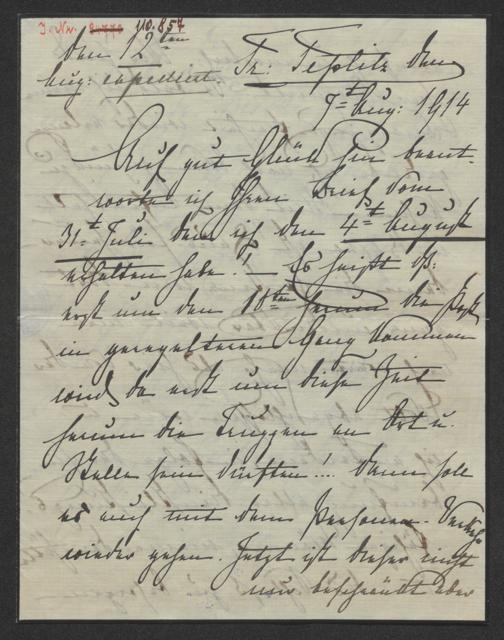 J. Nr. 110.857
den 12ten
Aug: expediert. Tr: Teplitz den
7t Aug: 1914
Auf gut Glück hin beant-
worte ich Ihren Brief vom
31t Juli den ich den 4t August
erhalten habe! – Es heißt daß:
erst um den 18ten herum die Post
in geregelteren Gang kommen
wird, da erst um diese Zeit
herum die Truppen an Ort u.
Stelle sein dürften!.. dann soll
es auch mit dem Personen-Verkehr
wieder gehen. Jetzt ist dieser nicht
nur beschränkt aber